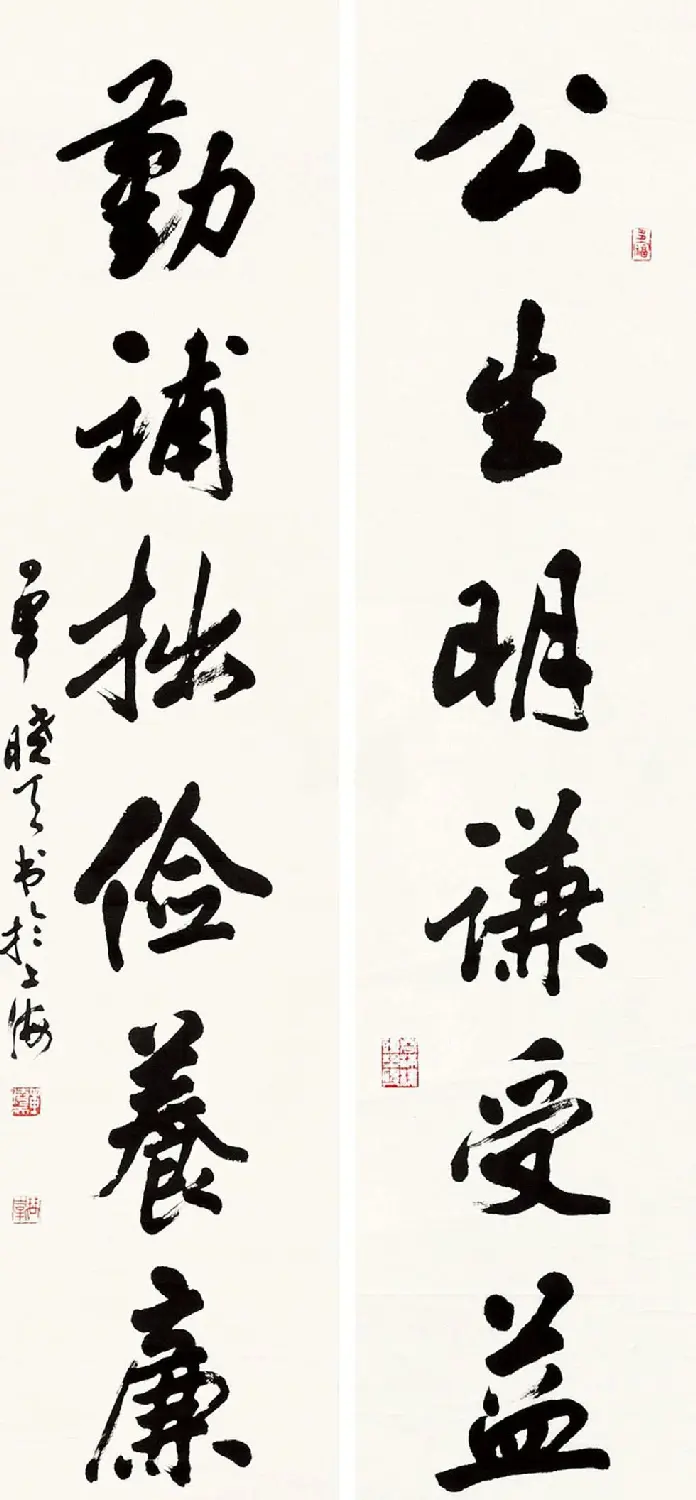 公生明謙受益
勤補拙儉養廉
覃曉天书於上海